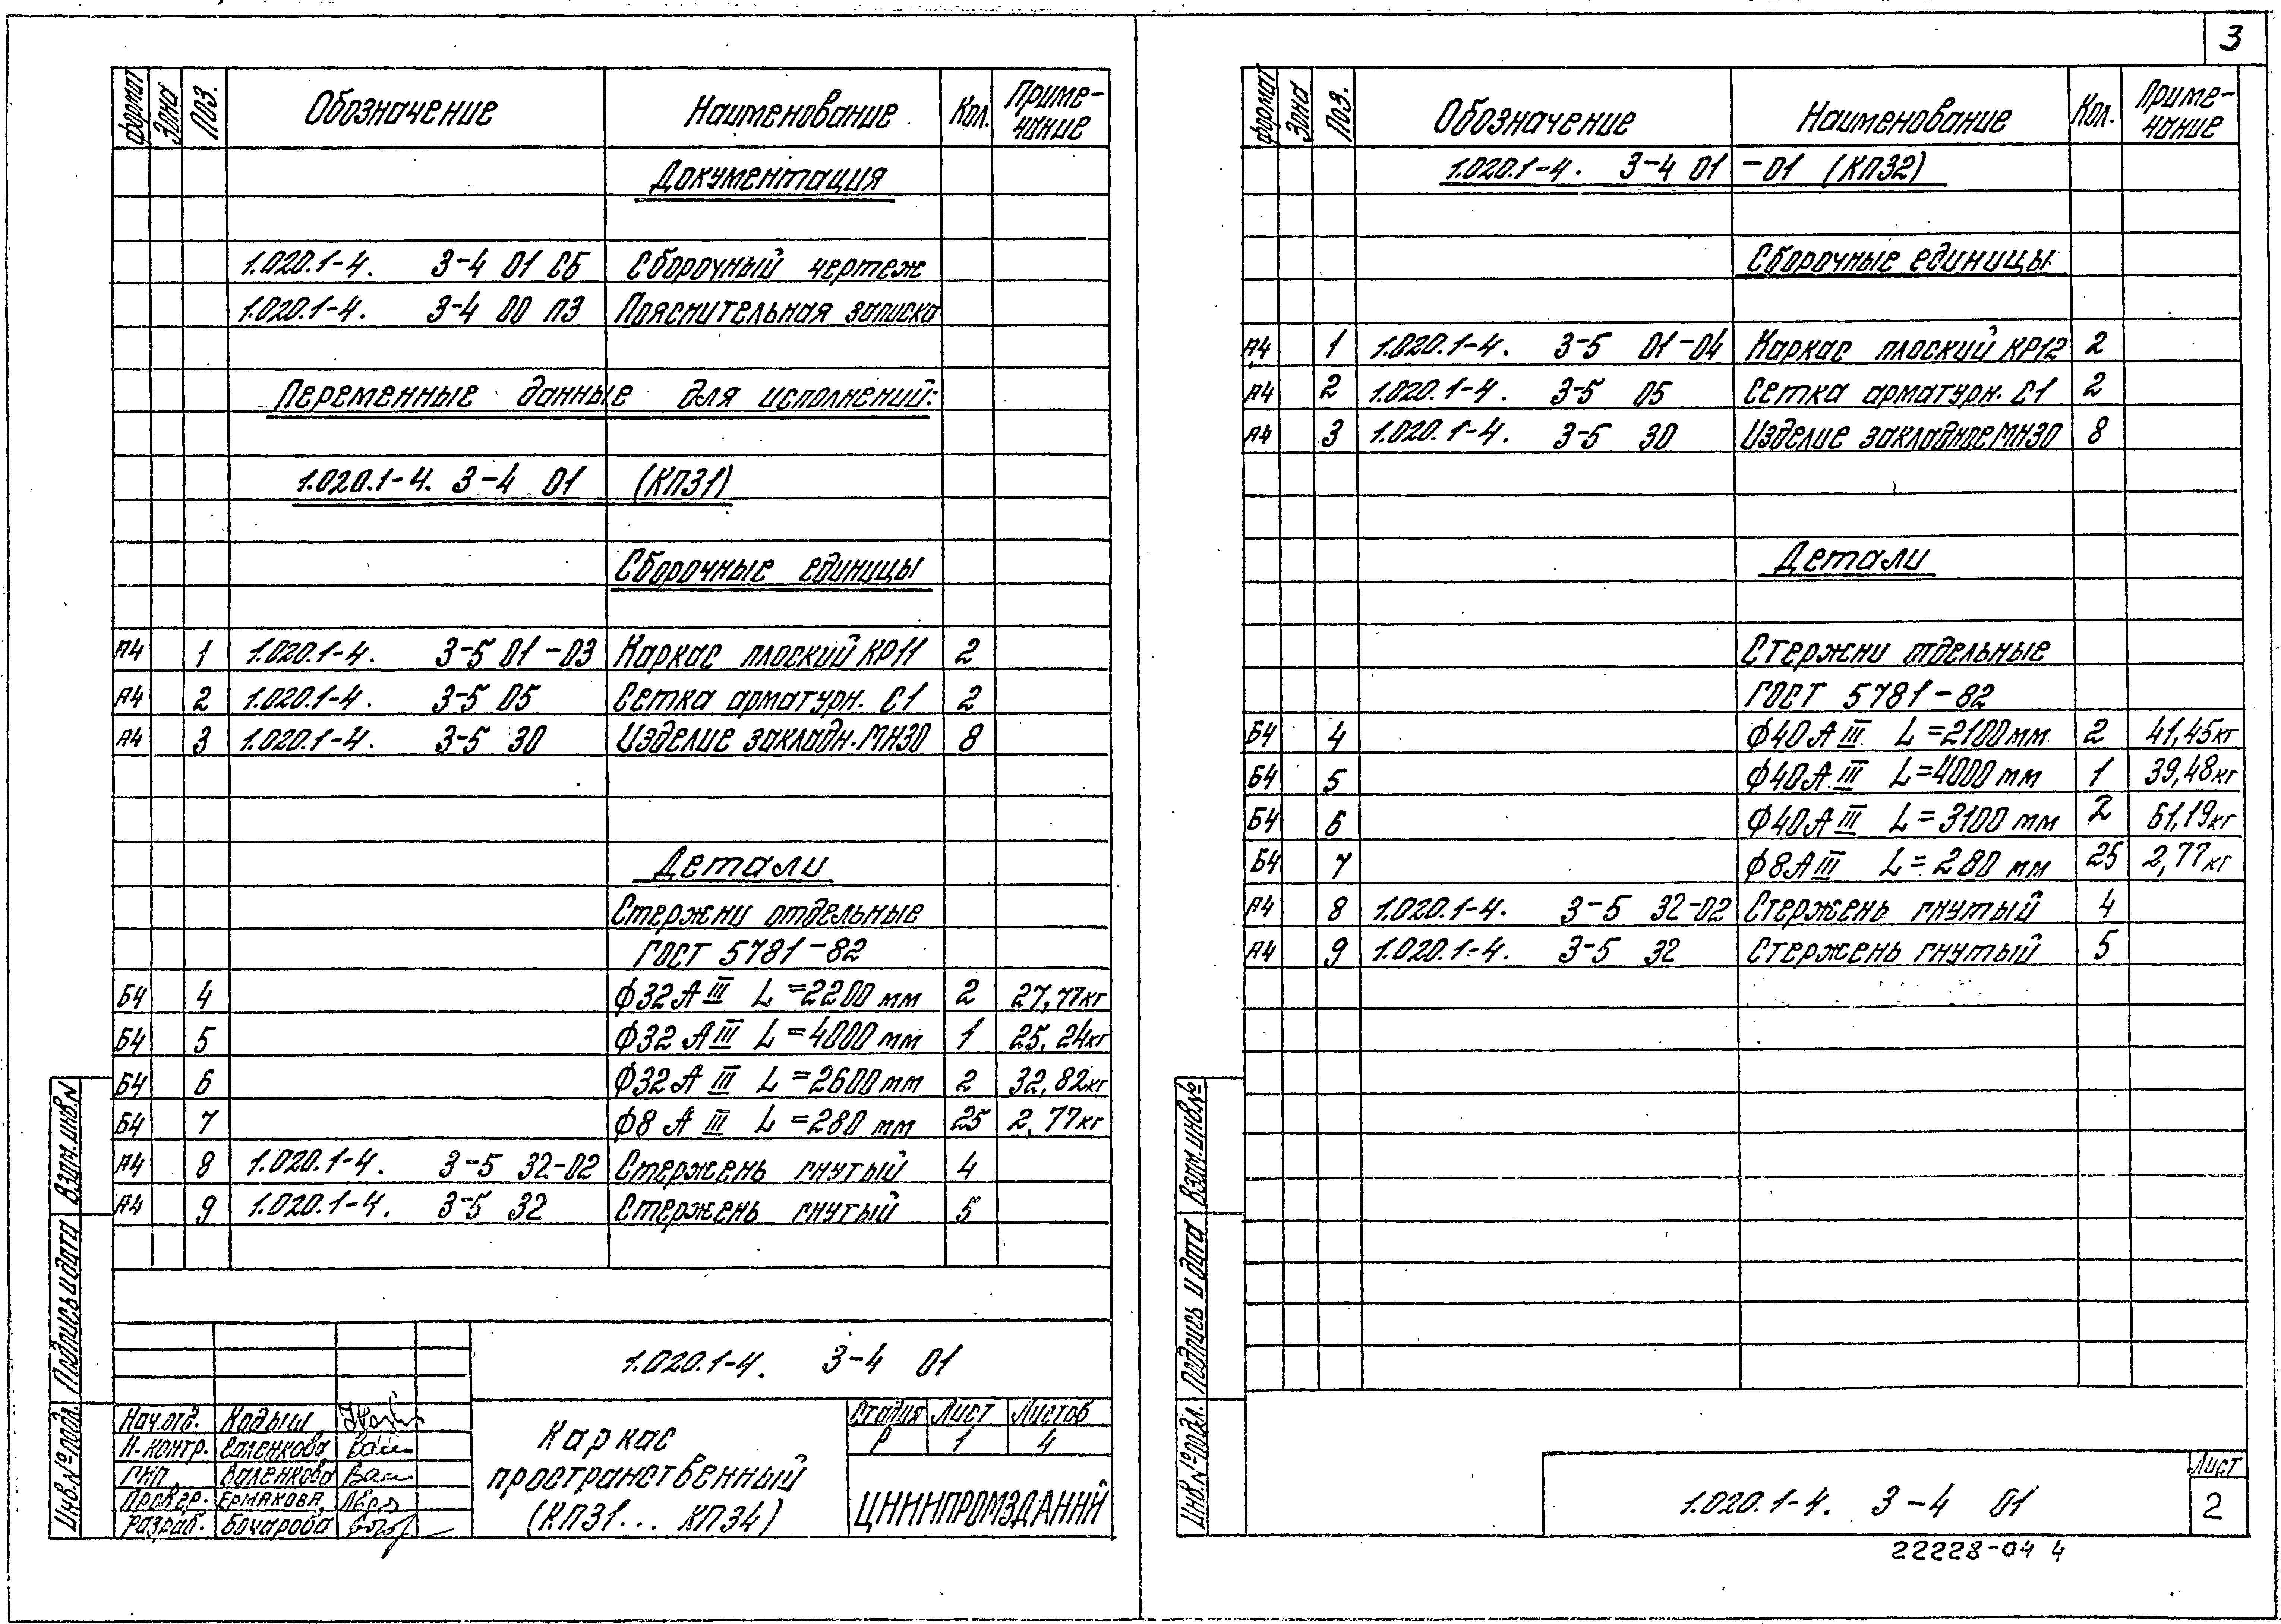 3
формат Зона Поз. Обозначение Наименование Кол. Приме-
чание
Документация
1.020.1-4. 3-4 01 СБ Сборочный чертеж
1.020.1-4. 3-4 00 ПЗ Пояснительная записка
Переменные данные для исполнений:
1.020.1-4. 3-4 01 (КП31)
Сборочные единицы
А4 1 1.020.1-4. 3-5 01-03 Каркас плоский КР11 2
А4 2 1.020.1-4. 3-5 05 Сетка арматурн. С1 2
А4 3 1.020.1-4. 3-5 30 Изделие закладн. МН30 8
Детали
Стержни отдельные
ГОСТ 5781-82
Б4 4 ф32АIII L=2200мм 2 27,77кг
Б4 5 ф32АIII L=4000мм 1 25,24кг
Б4 6 ф32АIII L=2600мм 2 32,82кг
Б4 7 ф8 АIII L=280 мм 25 2,77кг
А4 8 1.020.1-4. 3-5 32-02 Стержень гнутый 4
А4 9 1.020.1-4. 3-5 32 Стержень гнутый 5
1.020.1-4. 3-4 01
Нач.отд. Кодыш
Н.контр. Валенкова
ГИП Валенкова
Провер. Ермакова
Разраб. Бочарова
Каркас
пространственный
(КП31... КП34)
Стадия Лист Листов
Р 1 4
ЦНИИПРОМЗДАНИЙ
Инв.№подл. Подпись и дата Взам.инв.N
формат Зона Поз. Обозначение Наименование Кол. Приме-
чание
1.020.1-4. 3-4 01 -01 (КП32)
Сборочные единицы
А4 1 1.020.1-4. 3-5 01-04 Каркас плоский КР12 2
А4 2 1.020.1-4. 3-5 05 Сетка арматурн. С1 2
А4 3 1.020.1-4. 3-5 30 Изделие закладное МН30 8
Детали
Стержни отдельные
ГОСТ 5781-82
Б4 4 ф40АIII L=2100мм 2 41,45кг
Б4 5 ф40АIII L=4000мм 1 39,48кг
Б4 6 ф40АIII L=3100 мм 2 61,19кг
Б4 7 ф8АIII L=280 мм 25 2,77кг
А4 8 1.020.1-4. 3-5 32-02 Стержень гнутый 4
А4 9 1.020.1-4. 3-5 32 Стержень гнутый 5
Инв.№подл. Подпись и дата Взам.инв.№
1.020.1-4. 3-4 01
Лист
2
22228-04 4